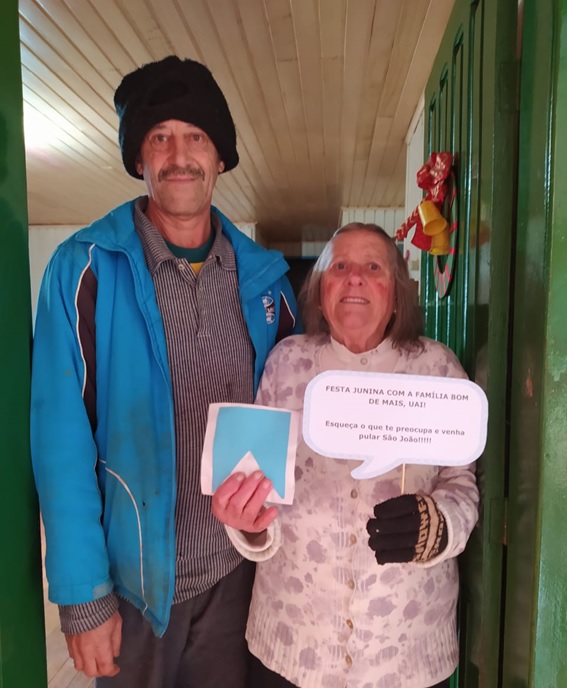 FESTA JUNINA COM A FAMÍLIA BOM
DE MAIS, UAI!
Esqueça o que te preocupa e venha
pular São João!!!!!